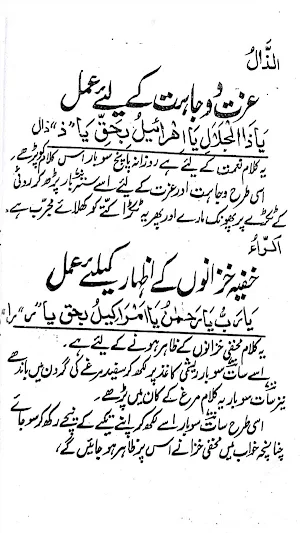 الذّالُ
عزت و وجاہت کے لئے عمل
یَا ذَا الْجَلَالِ یَا اھرائیلُ بحَقِّ یَا "ذ" ذال
یہ کلام نعمت کے لئے ہے روزانہ پانچ سو بار اسس کلام کو پڑھے۔
اسی طرح وجاہت اور عزت کے لئے اسے ستر بار پڑھ کر روٹی
کے ٹکڑے پر پھونک مارے اور پھر یہ ٹکڑا کتّے کو کھلائے مجرّب ہے۔
الرّاءُ
خفیہ خزانوں کے اظہار کیلئے عمل
یا رَبُّ یا رَحمٰنُ یا امراکیلُ بحق یا "ر" را
یہ کلام مخفی خزانوں کے ظاہر ہونے کے لئے ہے۔
اسے سات سو بار ریشمی کاغذ پر لکھ کر سفید مرغے کی گردن میں باندھے
نیز سات سو بار یہ کلام مرغ کے کان میں پڑھے۔
اسی طرح سات سو بار اسے لکھ کر اپنے تکیے کے نیچے رکھ کر سو جائے
چنانچہ خواب میں مخفی خزانے اس پر ظاہر ہو جائیں گے،